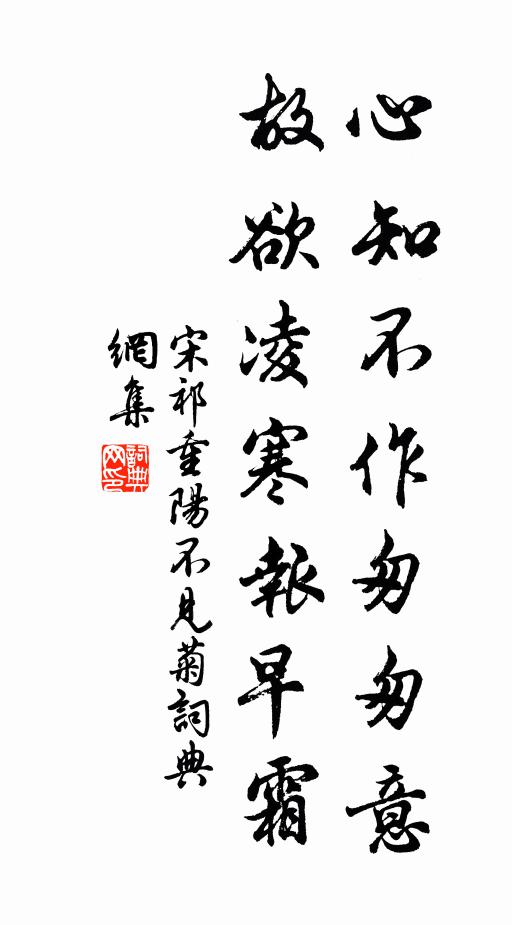 心知不作匆匆意
故欲凌寒報早霜
宋祁重陽不見菊詞典
網集
詞典
网印